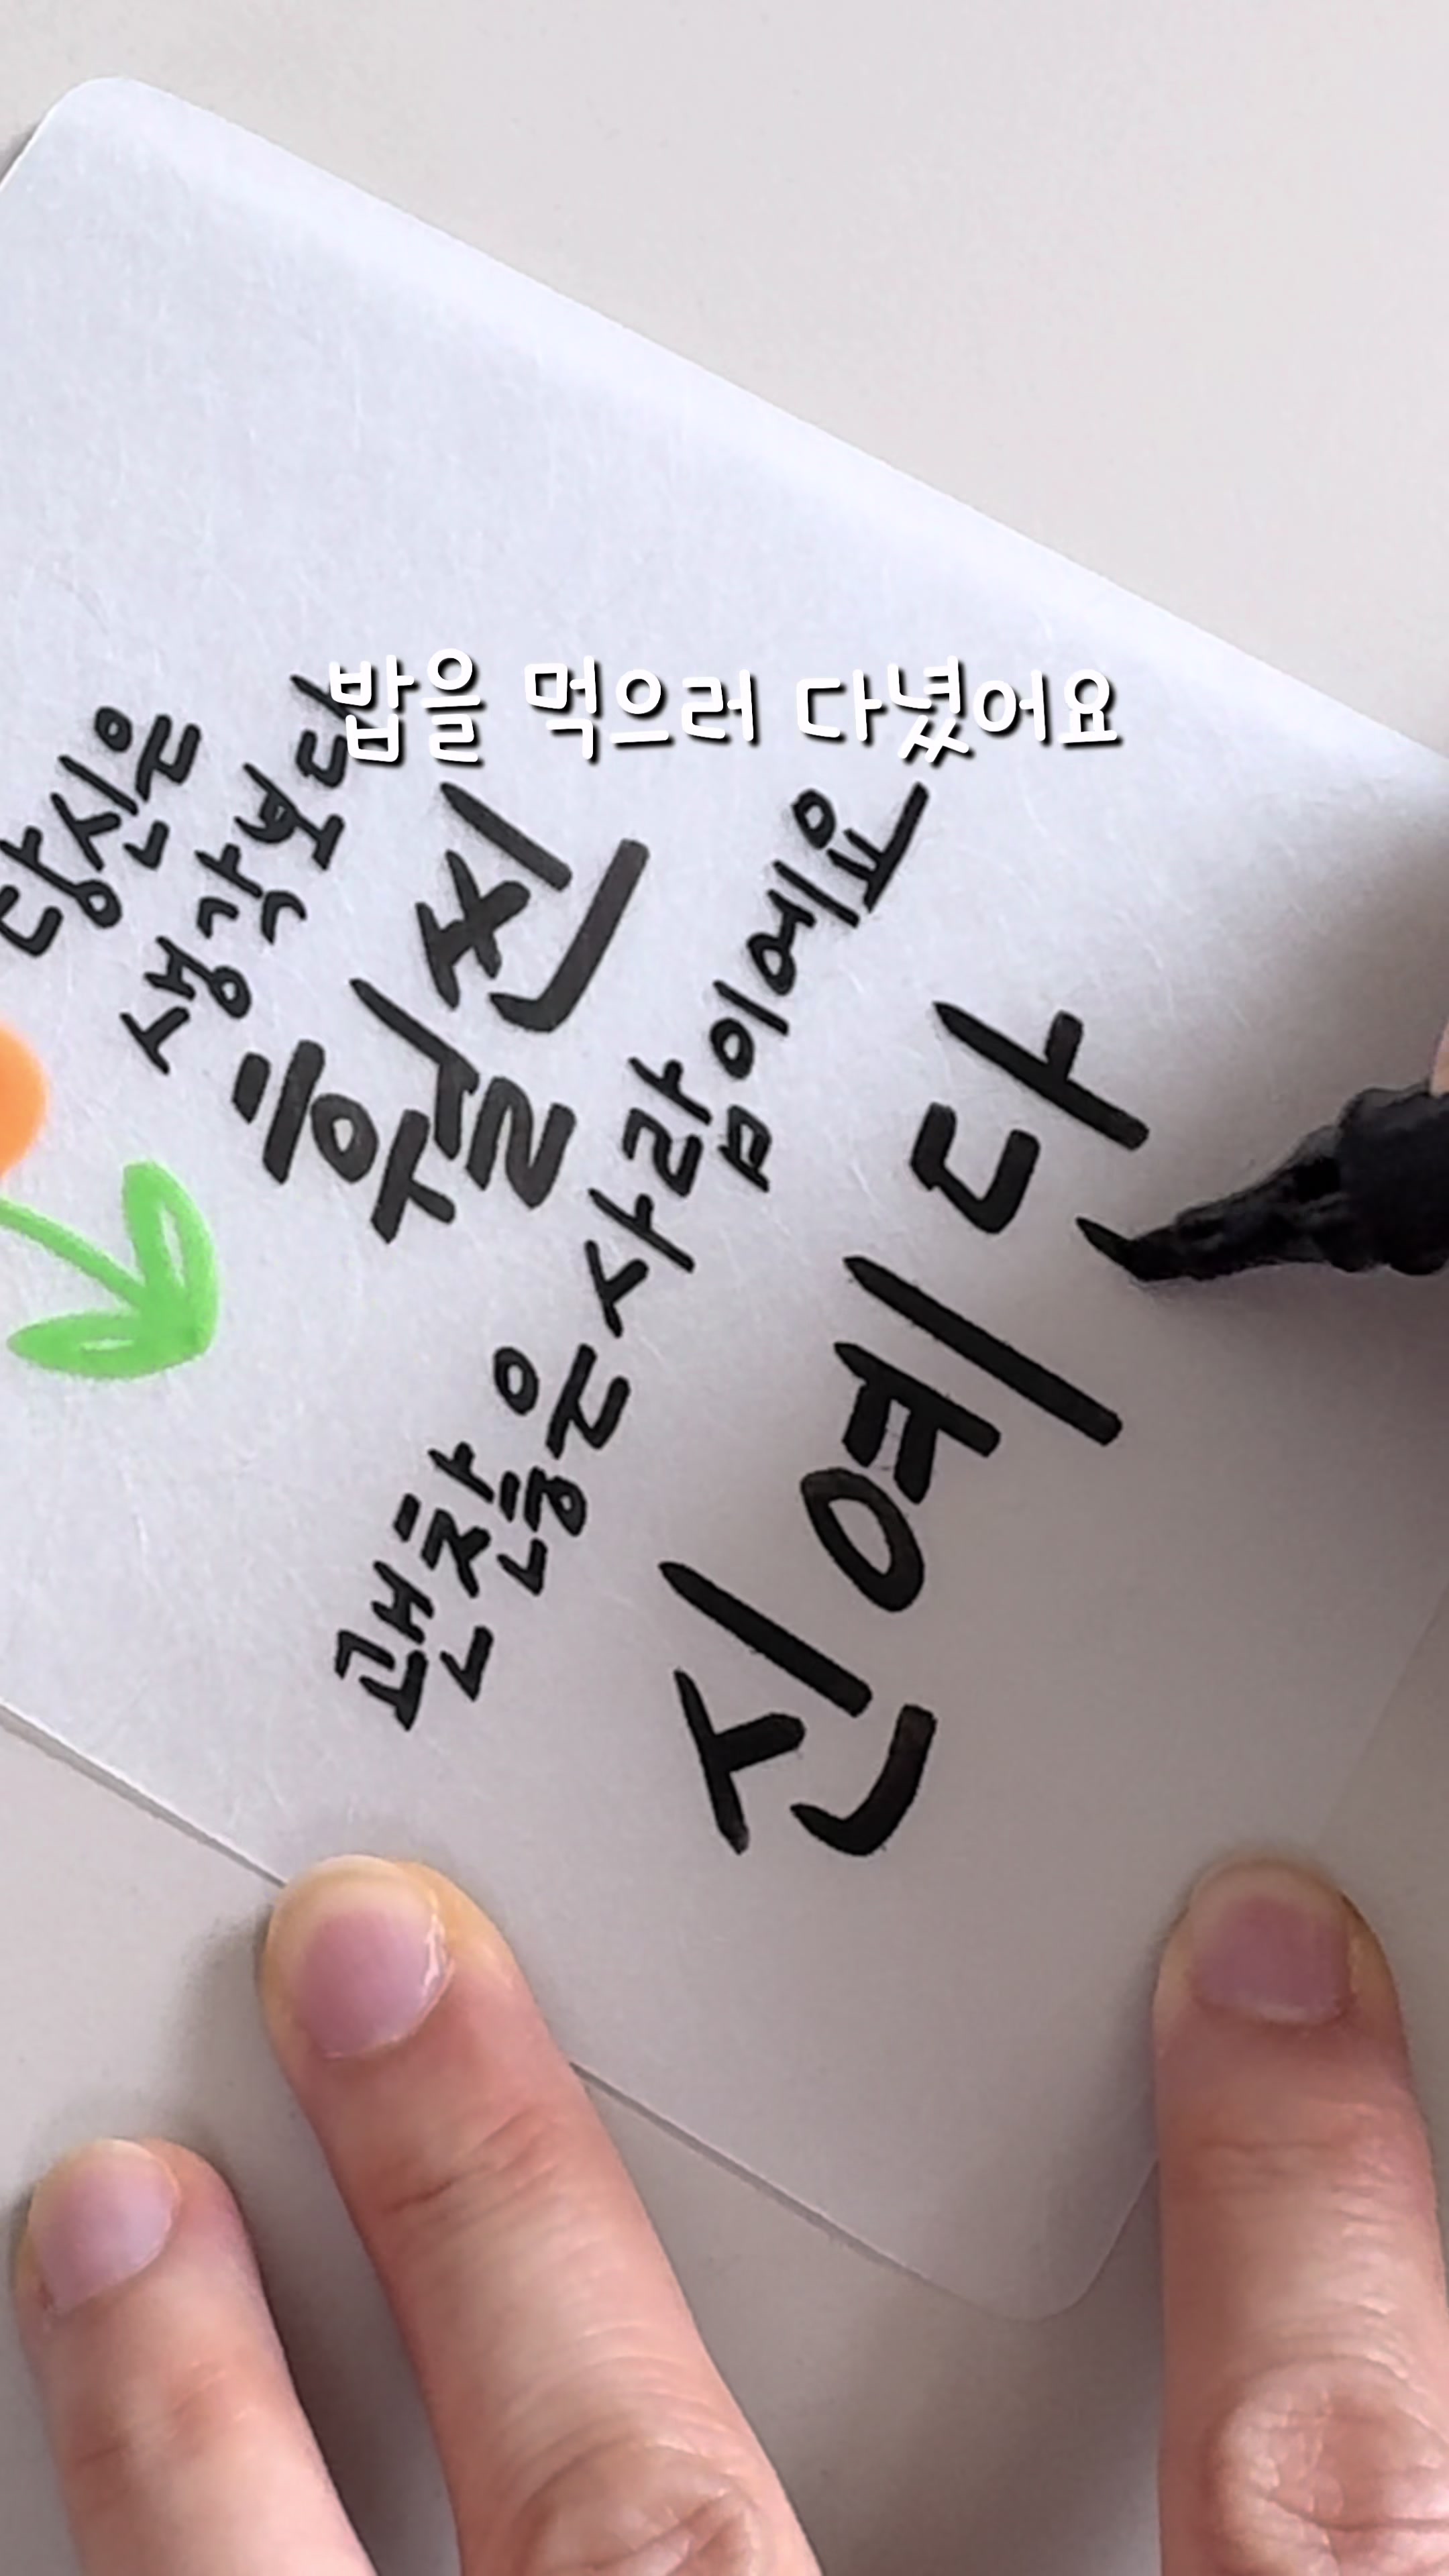 밥을 먹으러 다녔어요
당신은
생각보다
훨씬
괜찮은 사람이에요
신예다